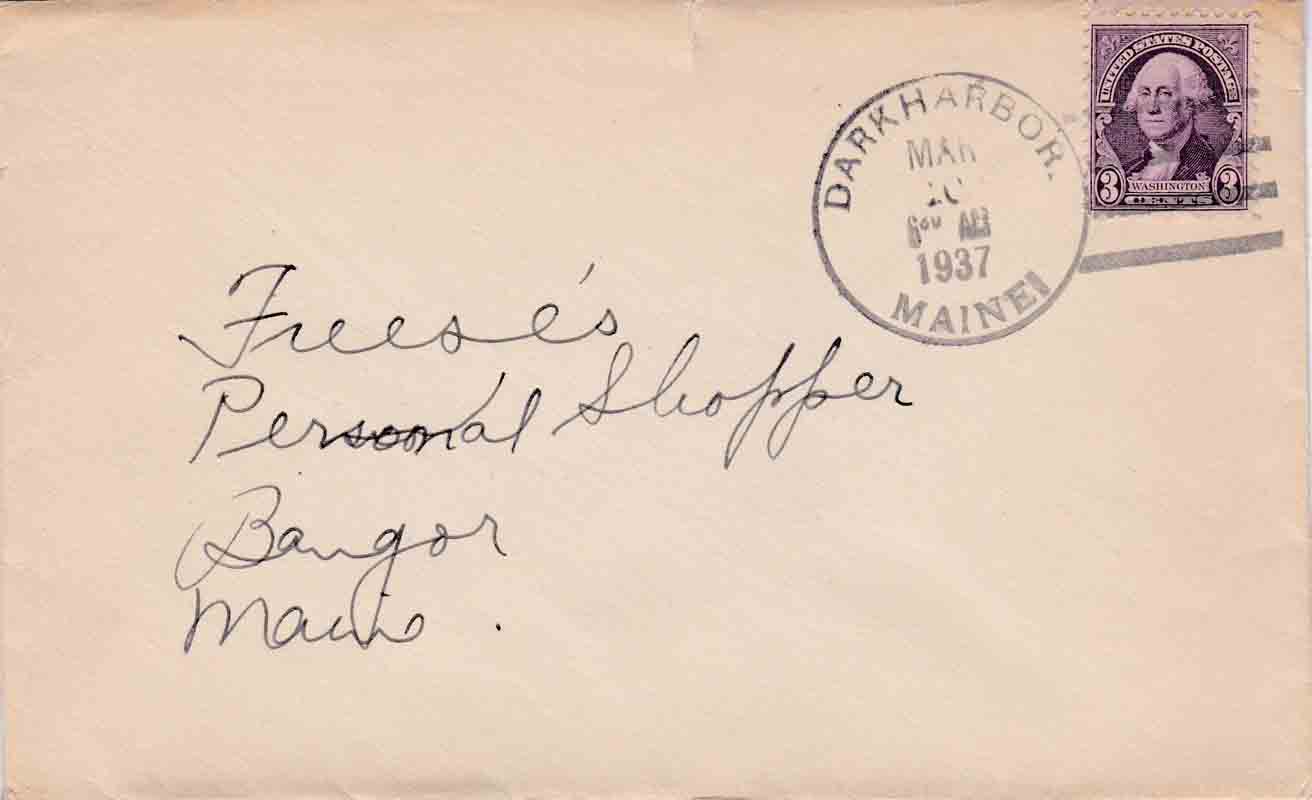 UNITED STATES POSTAGE
3 WASHINGTON 3
CENTS
DARKHARBOR.
MAR
6 00 AM
1937
MAINE
Freese's
Personal Shopper
Bangor
Maine.